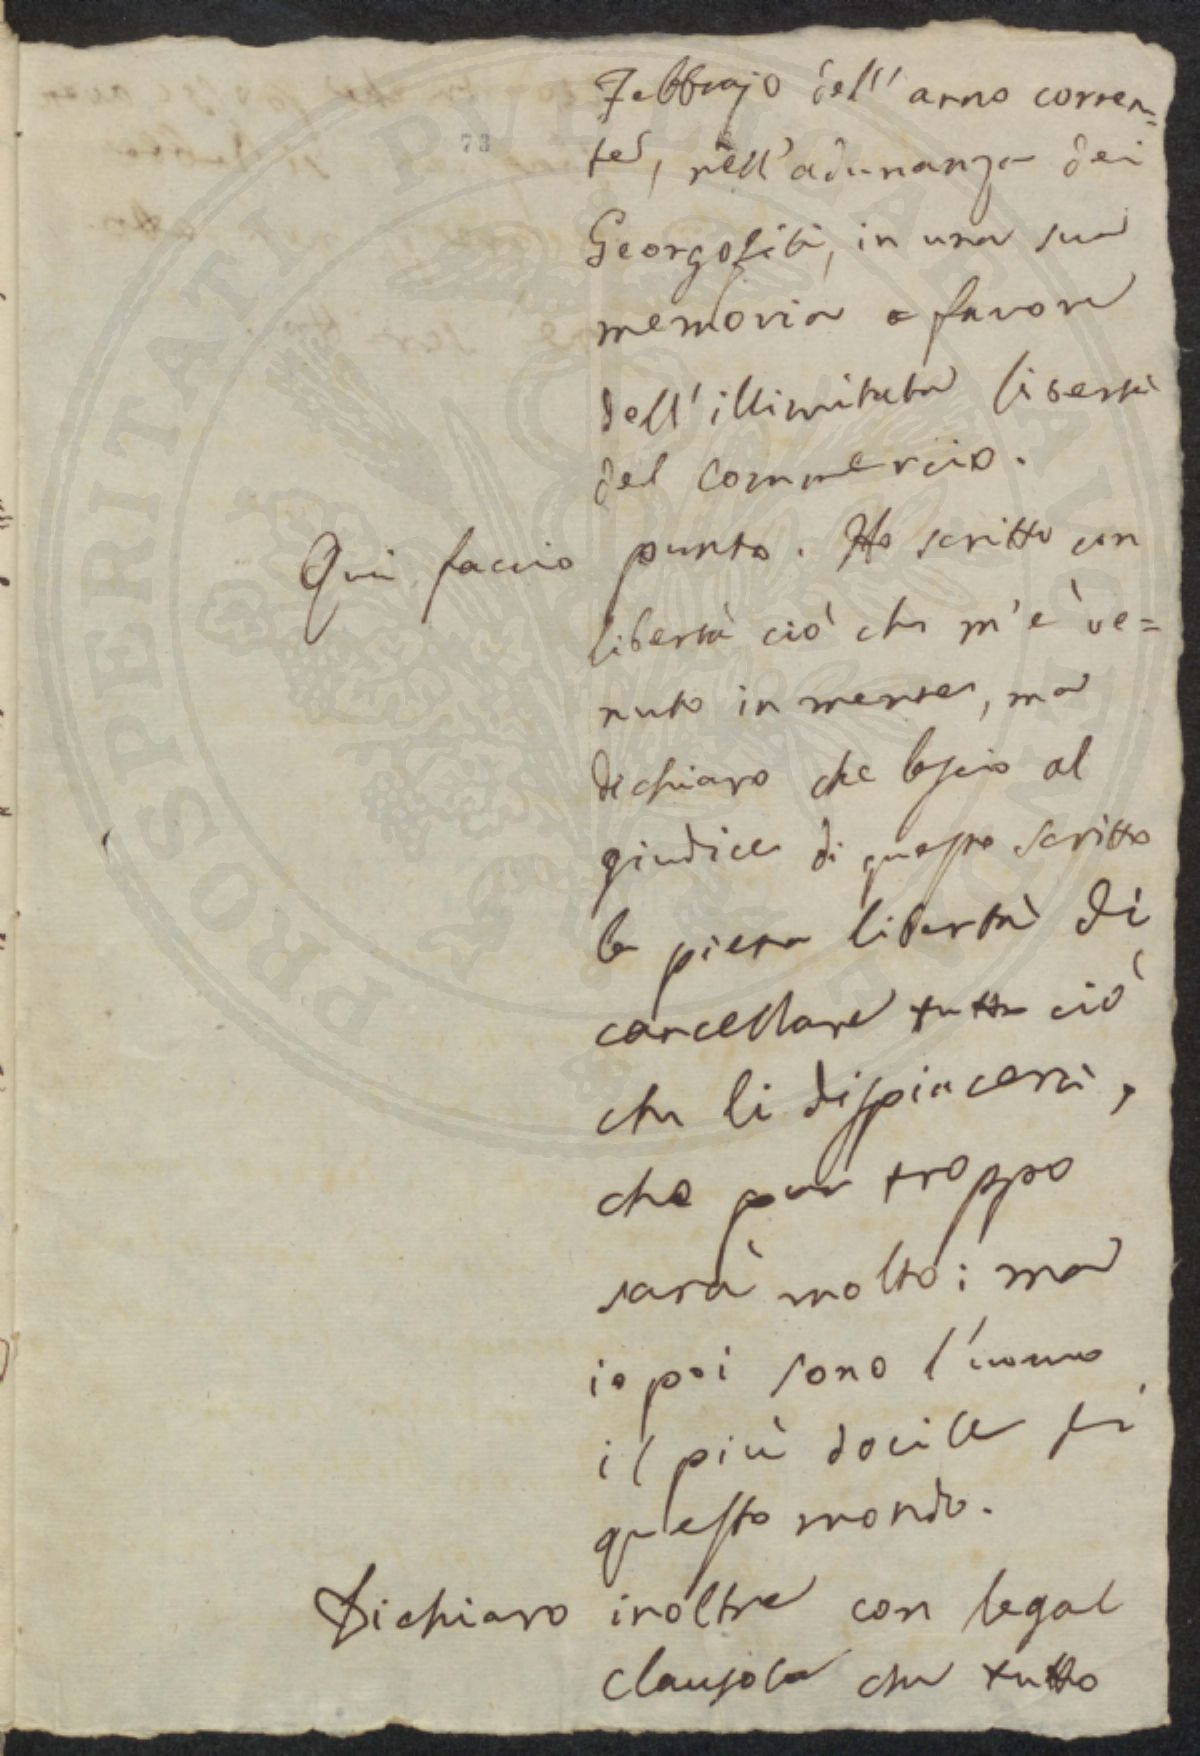 Febbrajo dell' anno corren=
te, nell'adunanza dei
Georgofili, in una sua
memoria a favore
dell'illimitata libertà
del commercio.
Qui faccio punto. Ho scritto con
libertà ciò che m'è ve=
nuto in mente, ma
dichiaro che lascio al
giudice di questo scritto
la piena libertà di
cancellare tutto ciò
che li dispiacerà,
che pur troppo
sarà molto: ma
io poi sono l'uomo
il più docile di
questo mondo.
Dichiaro inoltre con legal
clausola che tutto
73
PROSPERITATI PVBLICAE